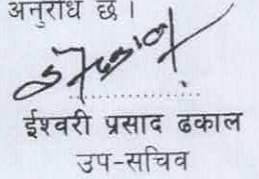 अनुरोध छ।
ईश्वरी प्रसाद ढकाल
उप-सचिव